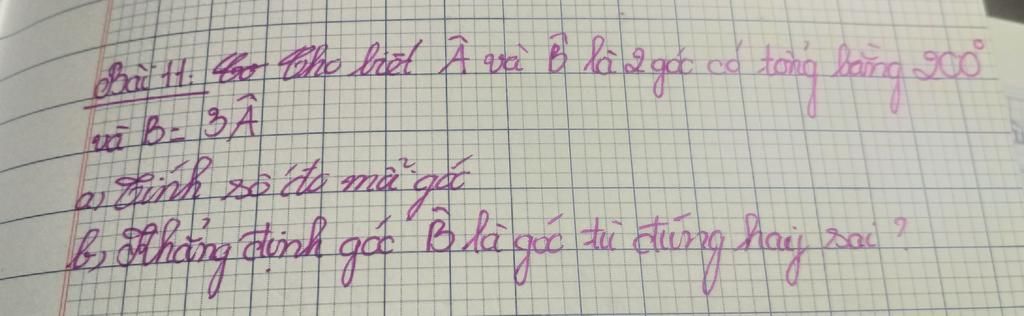 Bài 11. Cho biết Â và B̂ là 2 góc có tổng bằng 200°
và B = 3Â
a, Tính số đo mỗi góc
b, Khẳng định góc B̂ là góc tù đúng hay sai?